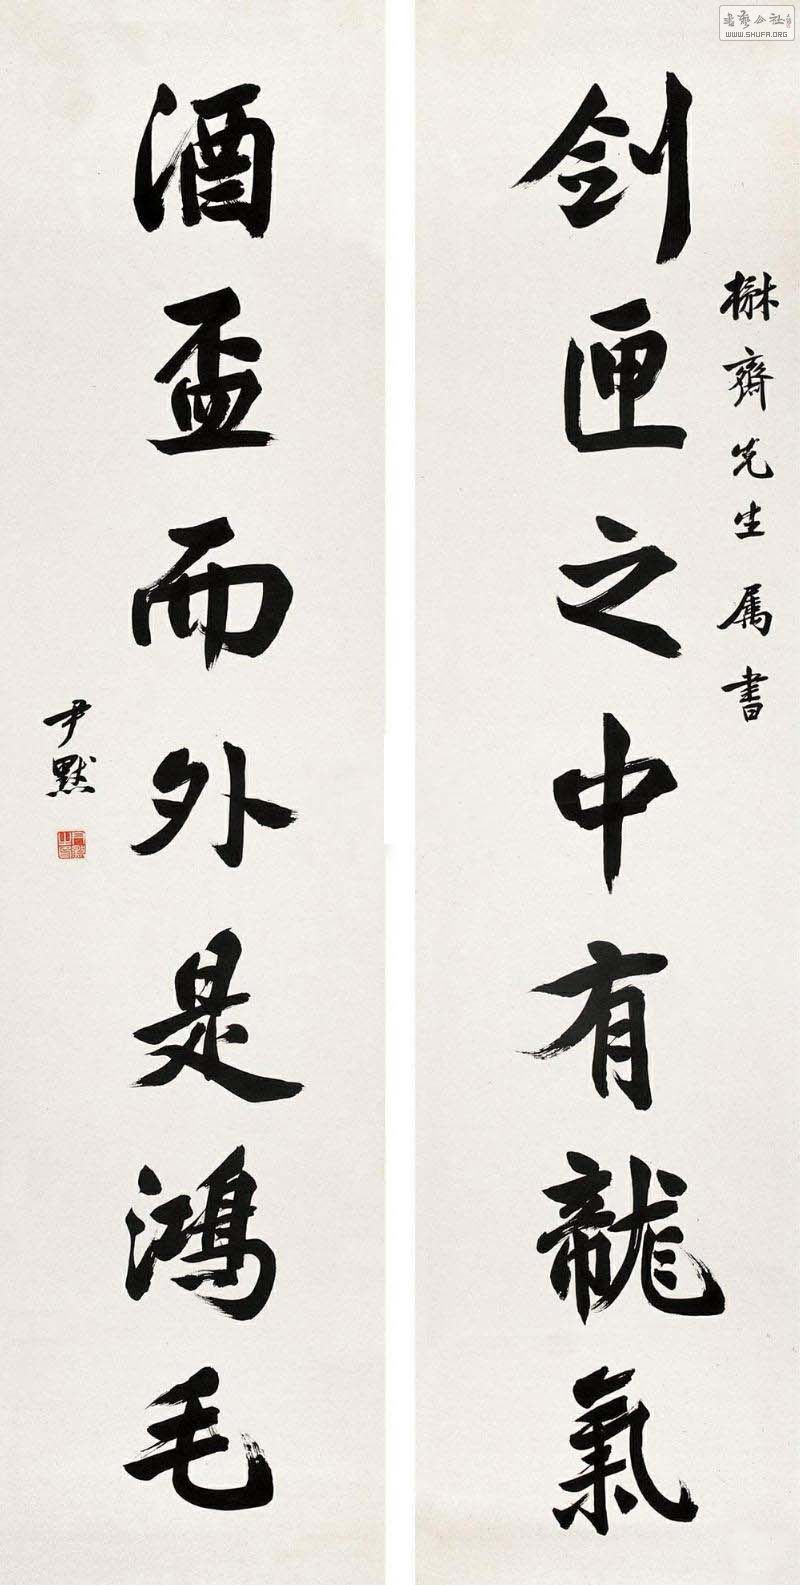 剑匣之中有龍氣
楙齊先生属書
酒盃而外是鴻毛
尹默
書藝公社
WWW.SHUFA.ORG